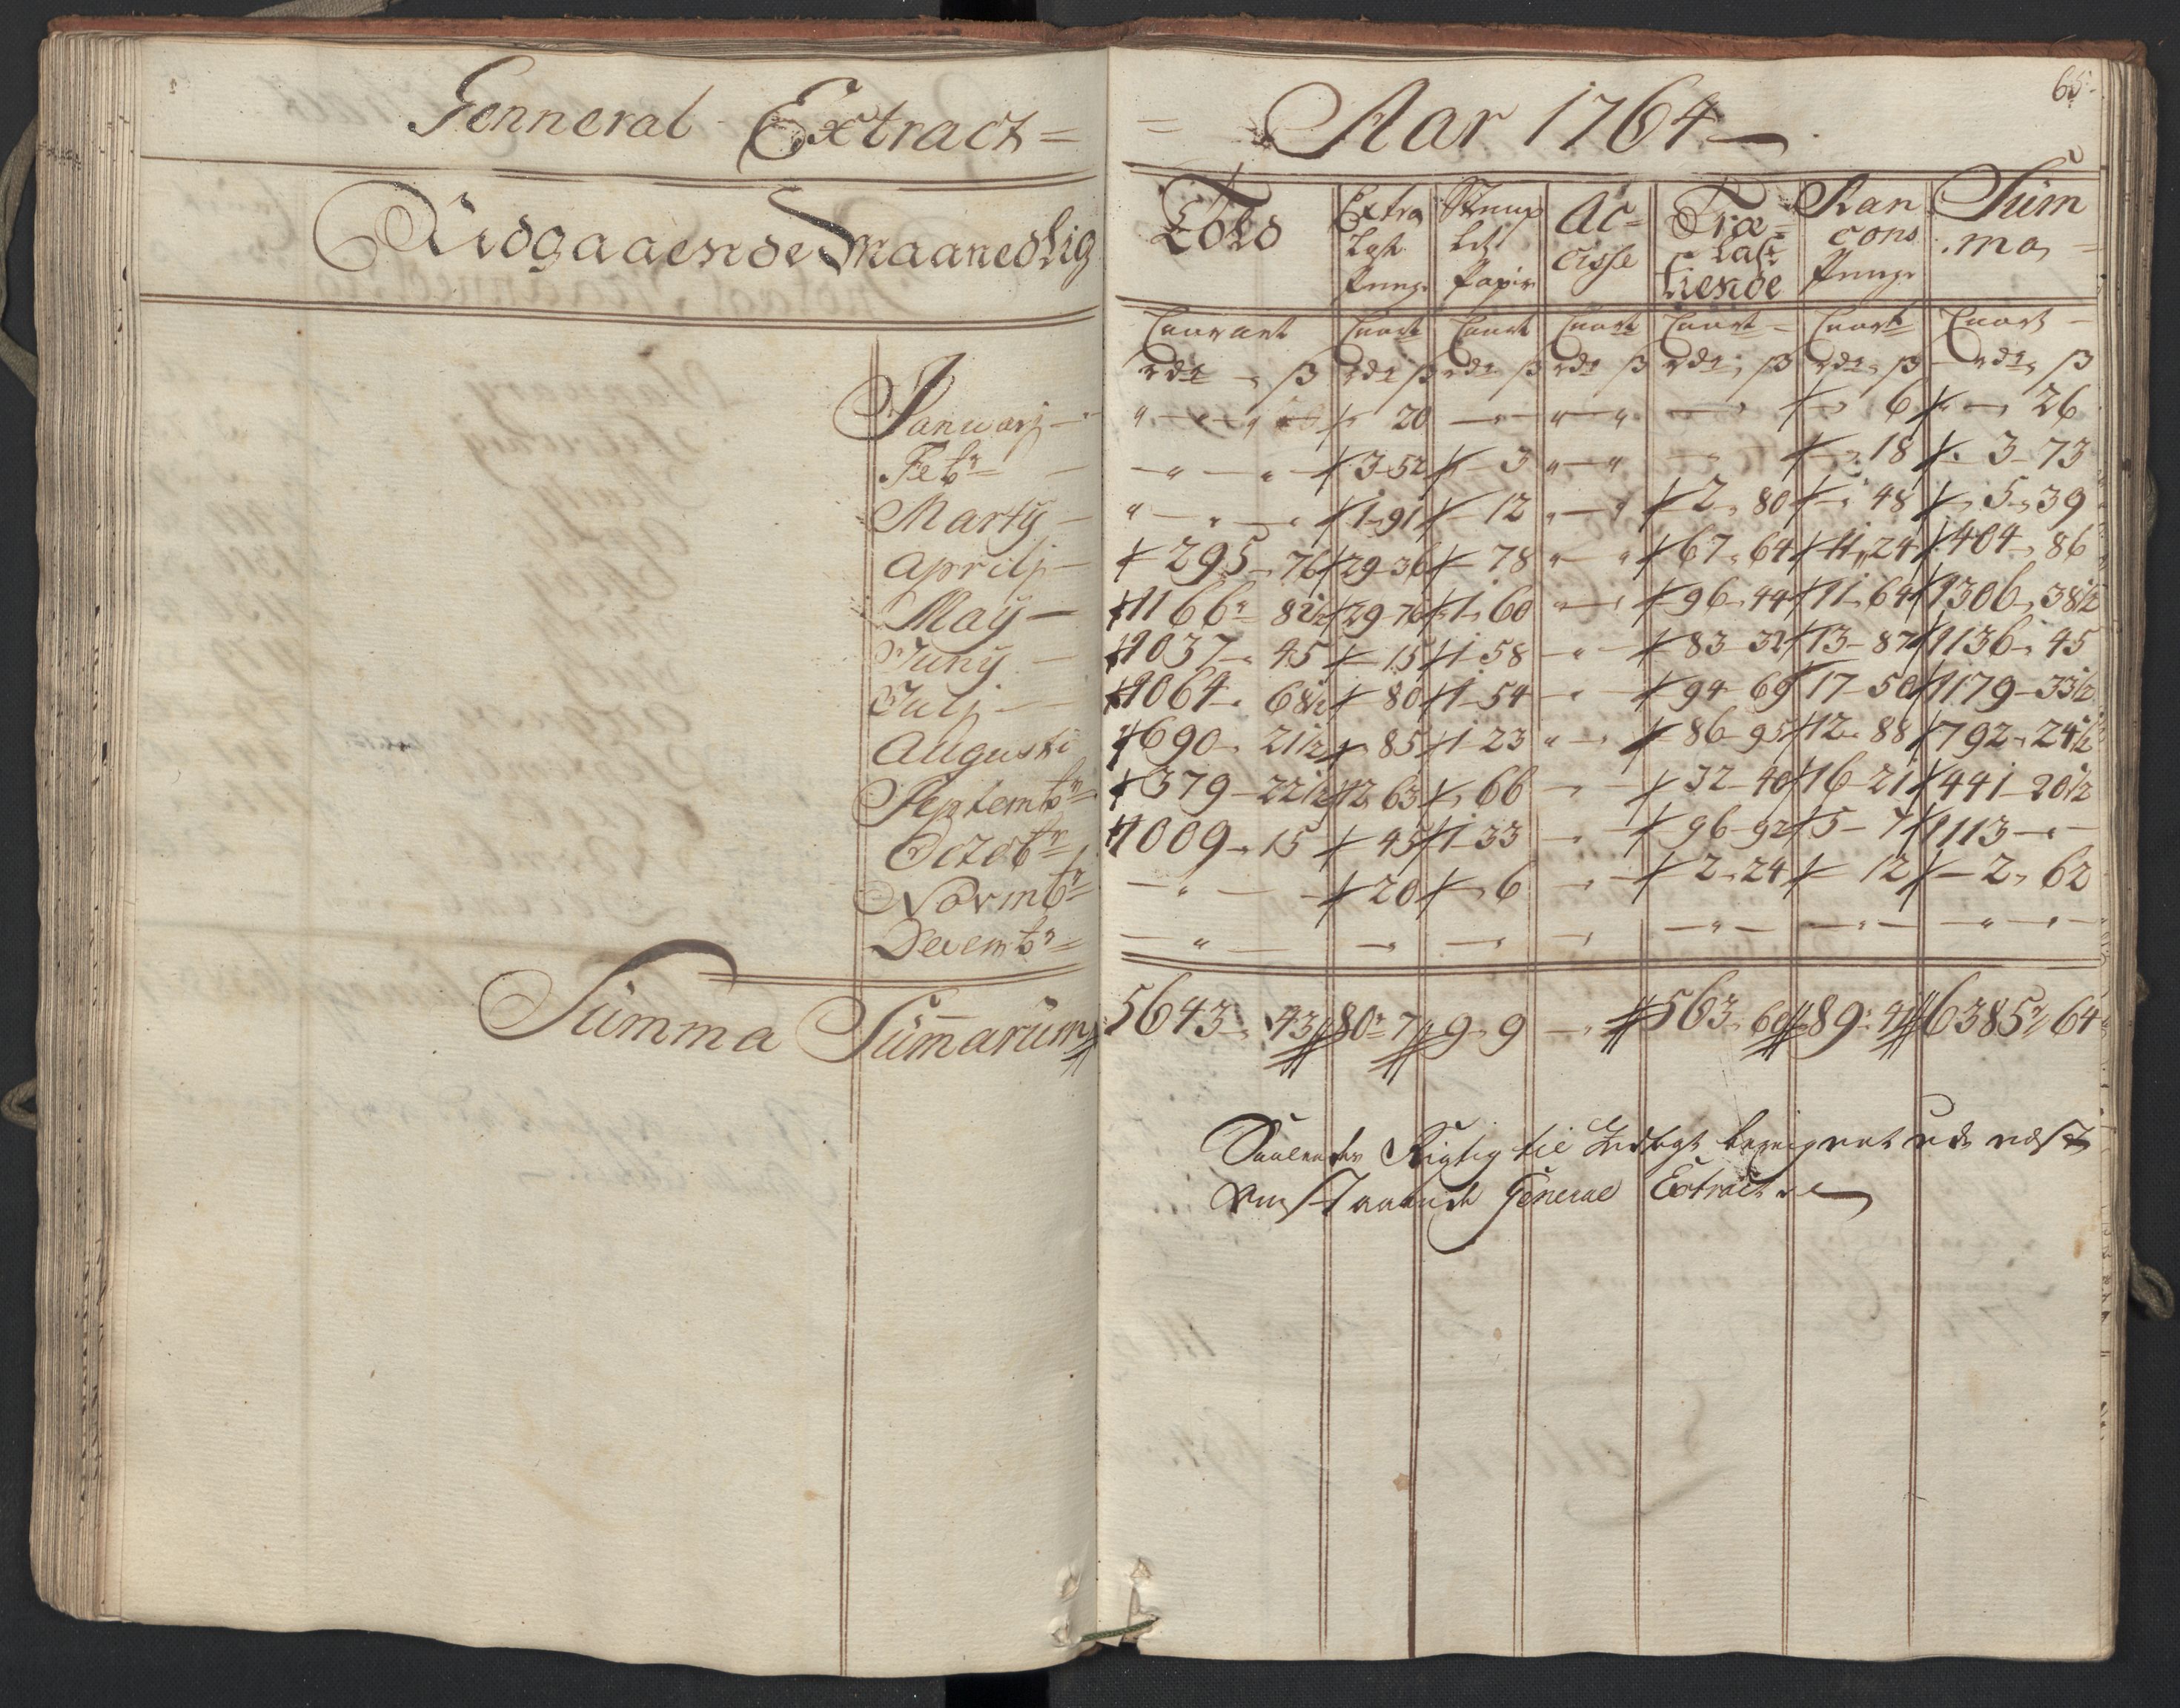 65
Genneral Extract =
= Aar 1764
Udgaaende Maanedlig
Told | Extra Last Penge | Stemp let Papir | Ac= cisse | Træ= last tiende | Ran cons Penge | Sum ma
Courant | Court | Court | Court | Court | Court | Court
rdr ß | rdr ß | rdr ß | rdr ß | rdr ß | rdr ß | rdr ß
Januarj — | " | 20 | — | " | — | 6 | 26
Febr — | " | 3 - 52 | 3 | " | — | 18 | 3 - 73
Martÿ — | " | 1 - 91 | 12 | " | 2 - 80 | 48 | 5 - 39
Aprilj — | 295 - 76 | 29 - 36 | 78 | " | 67 - 64 | 11 - 24 | 404 - 86
Maÿ — | 1166 - 8 1/2 | 29 - 76 | 1 - 60 | " | 96 - 44 | 11 - 64 | 1306 - 38 1/2
Junÿ — | 1037 - 45 | 15 | 1 - 58 | " | 83 - 32 | 13 - 87 | 1136 - 45
Julj — | 1064 - 68 1/2 | 80 | 1 - 54 | " | 94 - 69 | 17 - 50 | 1179 - 33 1/2
Augusti | 690 - 21 1/2 | 85 | 1 - 23 | " | 86 - 95 | 12 - 88 | 792 - 24 1/2
Septembr | 379 - 22 1/2 | 12 63 | 66 | " | 32 - 40 | 16 - 21 | 441 - 20 1/2
Octobr | 1009 - 15 | 45 | 1 - 33 | " | 96 - 92 | 5 - 7 | 1113 —
Novembr | " | 20 | 6 | " | 2 - 24 | 12 | 2 - 62
Decembr | " | " | " | " | " | " | "
Summa Summarum | 5643 - 43 | 80 - 7 | 9 - 9 | — | 563 - 60 | 89 - 41 | 6385 - 64
Saaledes Rigtig til Indtægt beregnet
General Extract